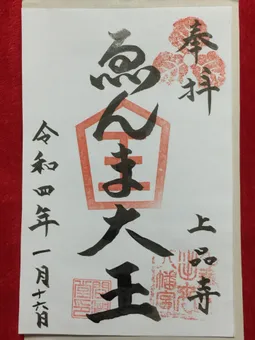 奉拝
上品寺
ゑんま大王
令和四年一月十六日